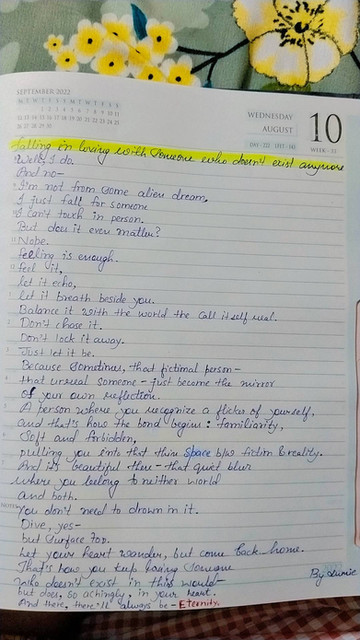 SEPTEMBER 2022
WEDNESDAY
AUGUST
10
WEEK - 33
falling in loving with someone who doesn't exist anymore
Well, I do.
And no-
I'm not from some alien dream,
I just fall for someone
I can't touch in person.
But does it even matter?
Nope.
feeling is enough.
feel it,
let it echo,
let it breath beside you.
Balance it with the world the call itself real.
Don't chase it.
Don't lock it away.
Just let it be.
Because sometimes, that fictional person-
that unreal someone - just become the mirror
of your own reflection.
A person where you recognize a flicker of yourself,
and that's how the bond begins: familiarity,
Soft and forbidden,
pulling you into that thin space b/w fiction & reality.
And it's beautiful there - that quiet blur
where you belong to neither world
and both.
You don't need to drown in it.
Dive, yes-
but surface too.
Let your heart wander, but come back home.
That's how you keep loving someone
who doesn't exist in this world-
but does, so achingly, in your heart.
And there, there'll always be - Eternity.